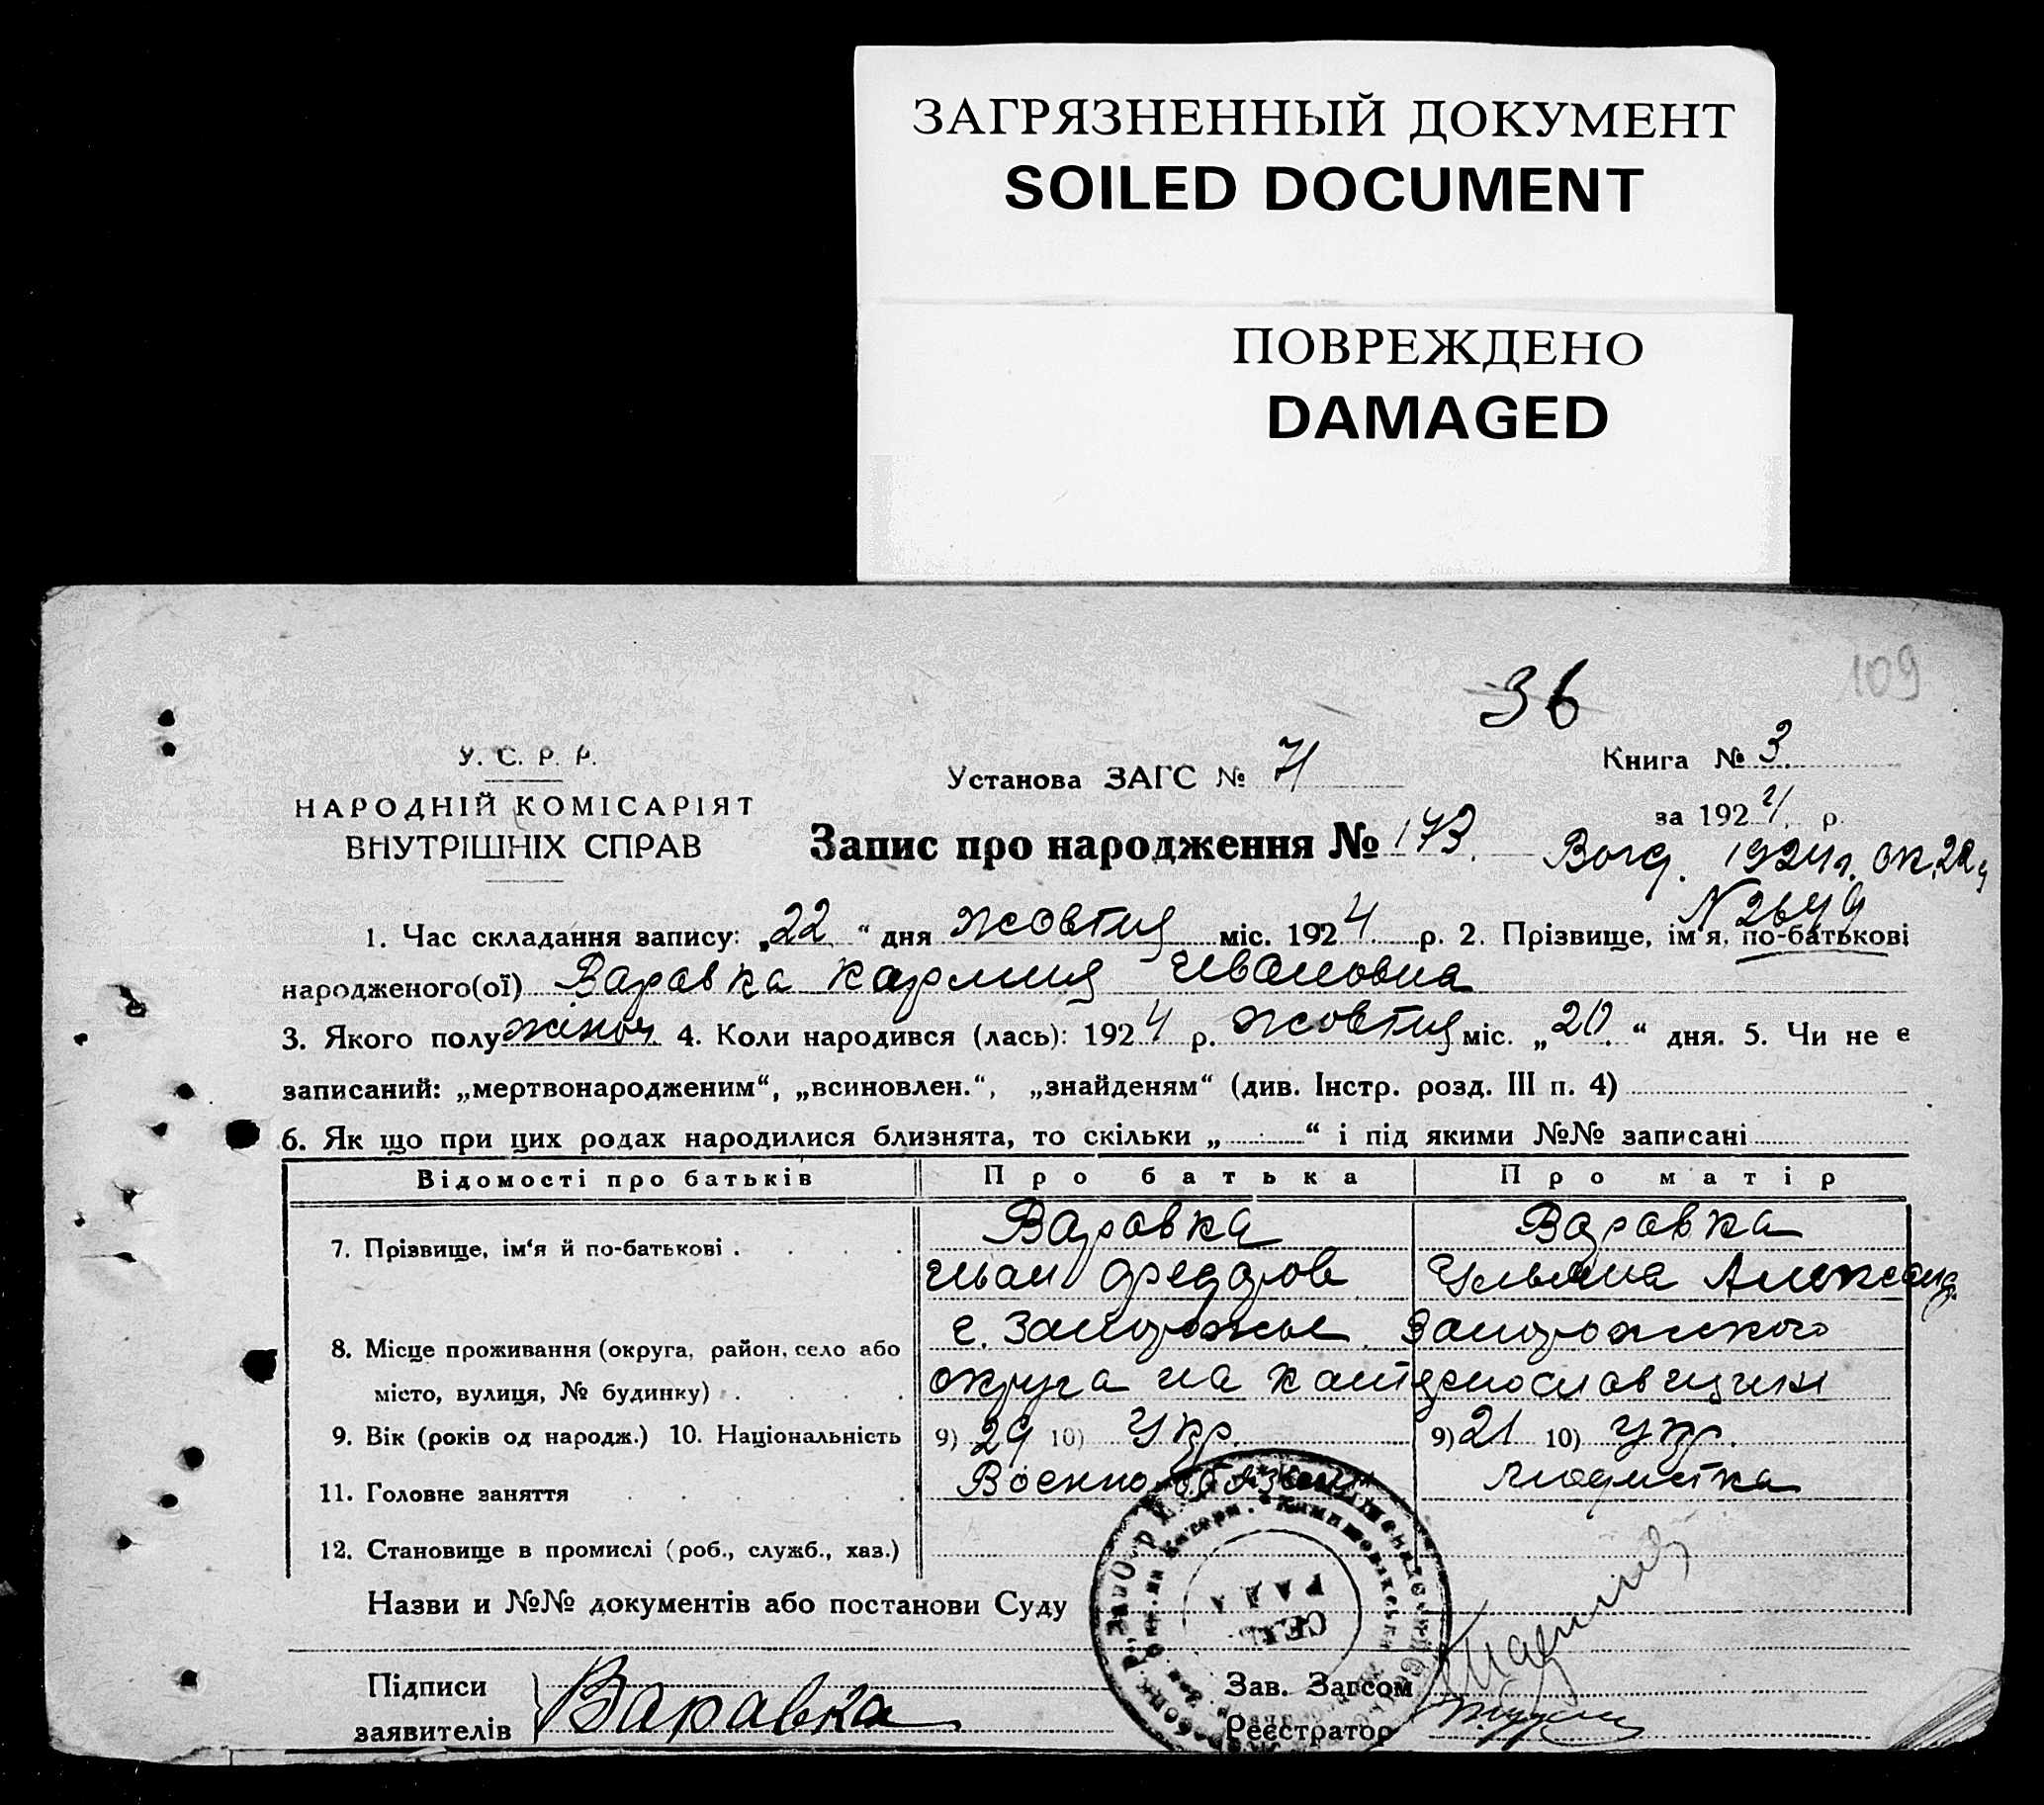 ЗАГРЯЗНЕННЫЙ ДОКУМЕНТ
SOILED DOCUMENT
ПОВРЕЖДЕНО
DAMAGED
109
36
У. С. Р. Р.
НАРОДНІЙ КОМІСАРІЯТ
ВНУТРІШНІХ СПРАВ
Установа ЗАГС №
Книга № 3.
за 1924 р.
Запис про народження № 173.
1924 г. ок. 22
N 2649
1. Час складання запису: „22“ дня жовтня міс. 1924 р. 2. Прізвище, ім'я, по-батькові
народженого(ої) Варавка Ивановна
3. Якого полу жіноч 4. Коли народився (лась): 1924 р. жовтня міс. „20.“ дня. 5. Чи не є
записаний: „мертвонародженим“, „всиновлен.“, „знайденям“ (див. Інстр. розд. III п. 4)
6. Як що при цих родах народилися близнята, то скільки „ “ і під якими №№ записані
Відомості про батьків Про батька Про матір
7. Прізвище, ім‘я й по-батькові . Варавка Варавка
Иван Федоров Ульяна Александ.
8. Місце проживання (округа, район, село або г. Запорожье Запорожского
місто, вулиця, № будинку) . округа на Катеринославщині
9. Вік (років од народж.) 10. Національність 9) 29 10) Укр. 9) 21 10) Укр.
11. Головне заняття Военно-обязан модистка
12. Становище в промислі (роб., служб., хаз.)
СЕЛ. РАДА
Назви и №№ документів або постанови Суду
Підписи Зав. Загсом
заявителів Варавка Реєстратор